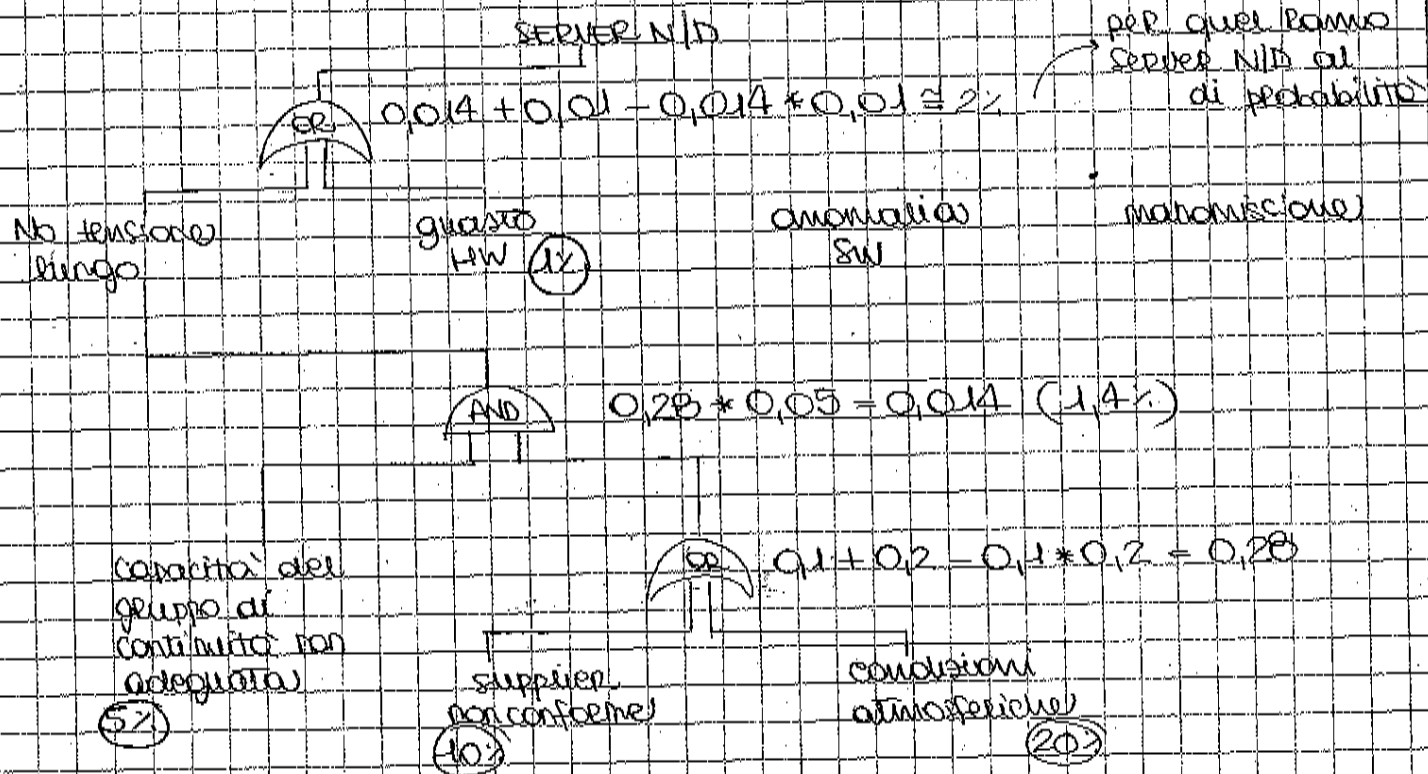 SERVER N/D
per quel ramo
server N/D al
di probabilità
OR
0,014 + 0,01 - 0,014 * 0,01 ≅ 2%
No tensione
lungo
guasto
HW 1%
anomalia
SW
manomissione
AND
0,28 * 0,05 = 0,014 (1,4%)
OR
0,1 + 0,2 - 0,1 * 0,2 = 0,28
capacità del
gruppo di
continuità non
adeguata
5%
supplier
non conforme
10%
condizioni
atmosferiche
20%